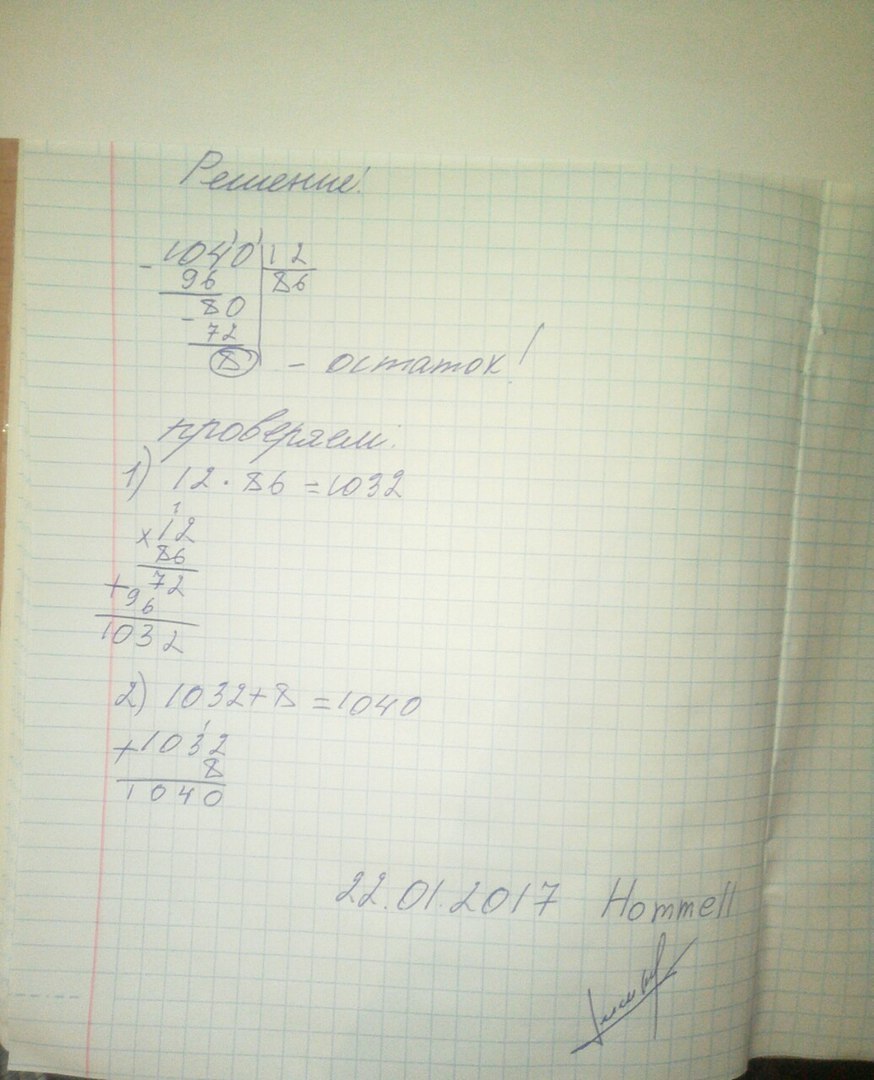 Решение!
- 1040 | 12
96 | 86
- 80
72
8 - остаток!
проверяем:
1) 12 · 86 = 1032
1
x 12
86
+ 72
96
1032
2) 1032 + 8 = 1040
1
+ 1032
8
1040
22.01.2017 Hommell